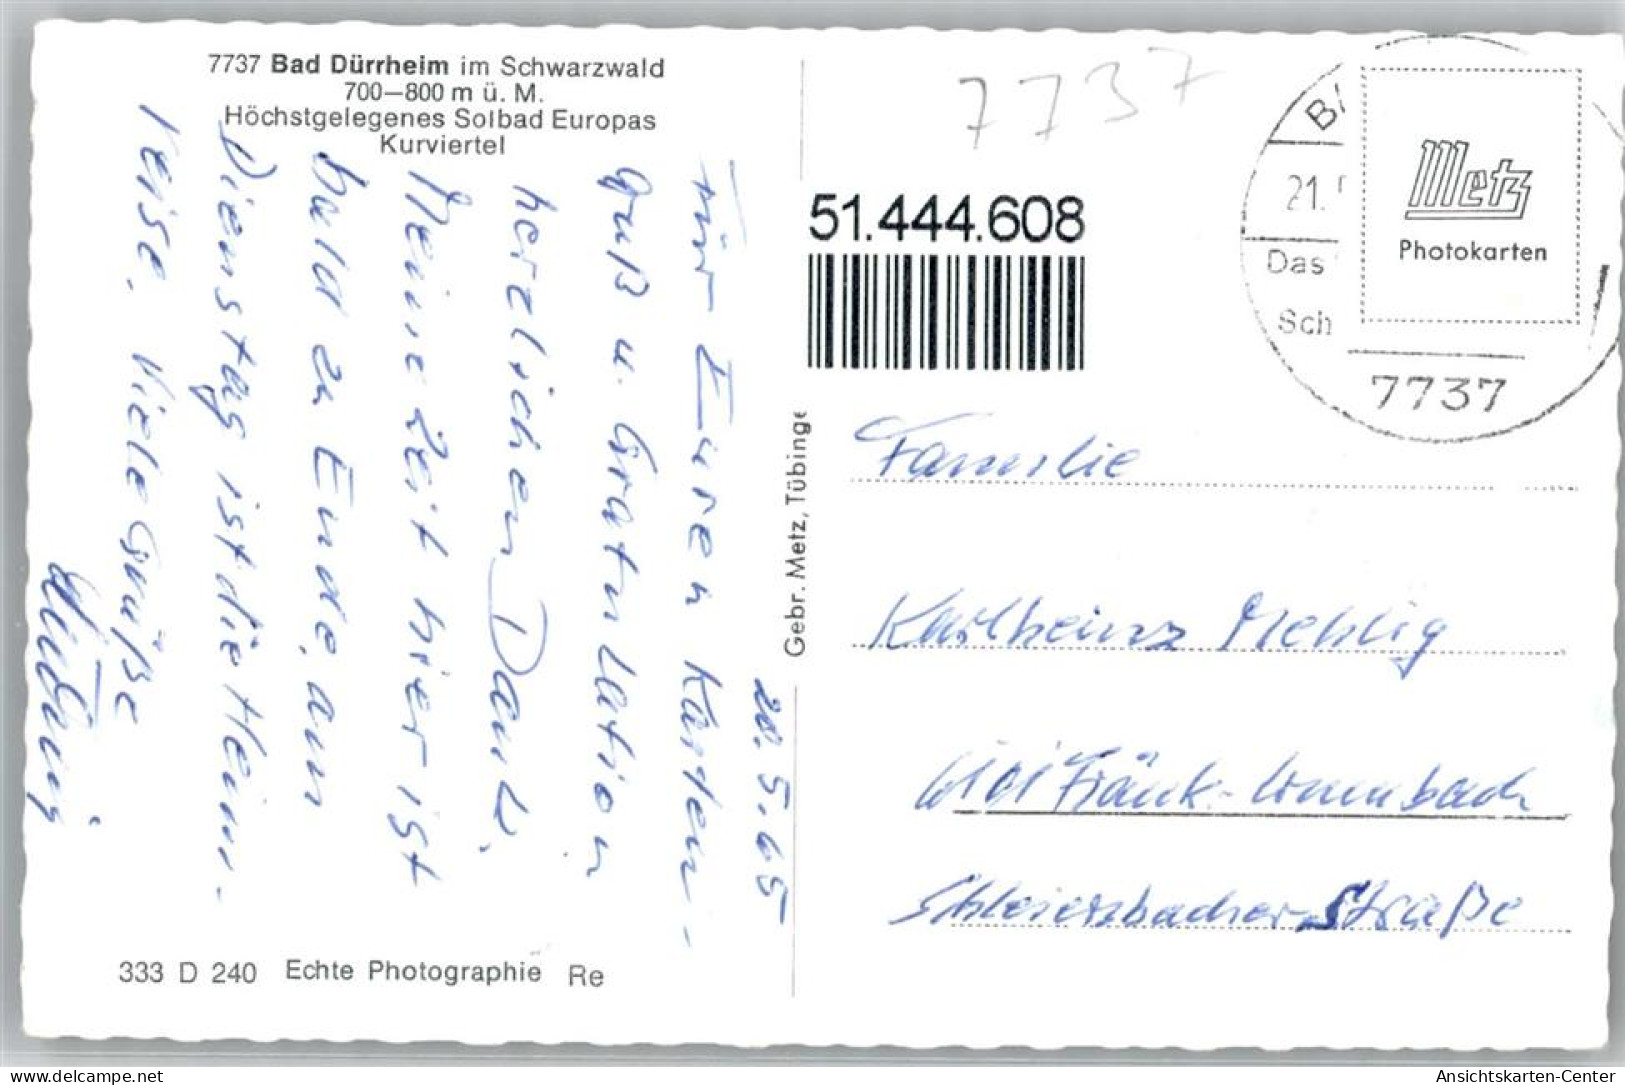 7737 Bad Dürrheim im Schwarzwald
700—800 m ü. M.
Höchstgelegenes Solbad Europas
Kurviertel
20.5.65
Für Euren Karten-
gruß u. Gratulation
herzlichen Dank.
Meine Zeit hier ist
bald zu Ende, am
Dienstag ist die Heim-
reise. Viele Grüße
333 D 240 Echte Photographie Re
Gebr. Metz, Tübinge
7737
51.444.608
BA
21.
Das
Sch
7737
Metz
Photokarten
Familie
Karlheinz Mehlig
6101 Fränk.-Crumbach
Schleiersbacher Straße
Ansichtskarten-Center
www.delcampe.net